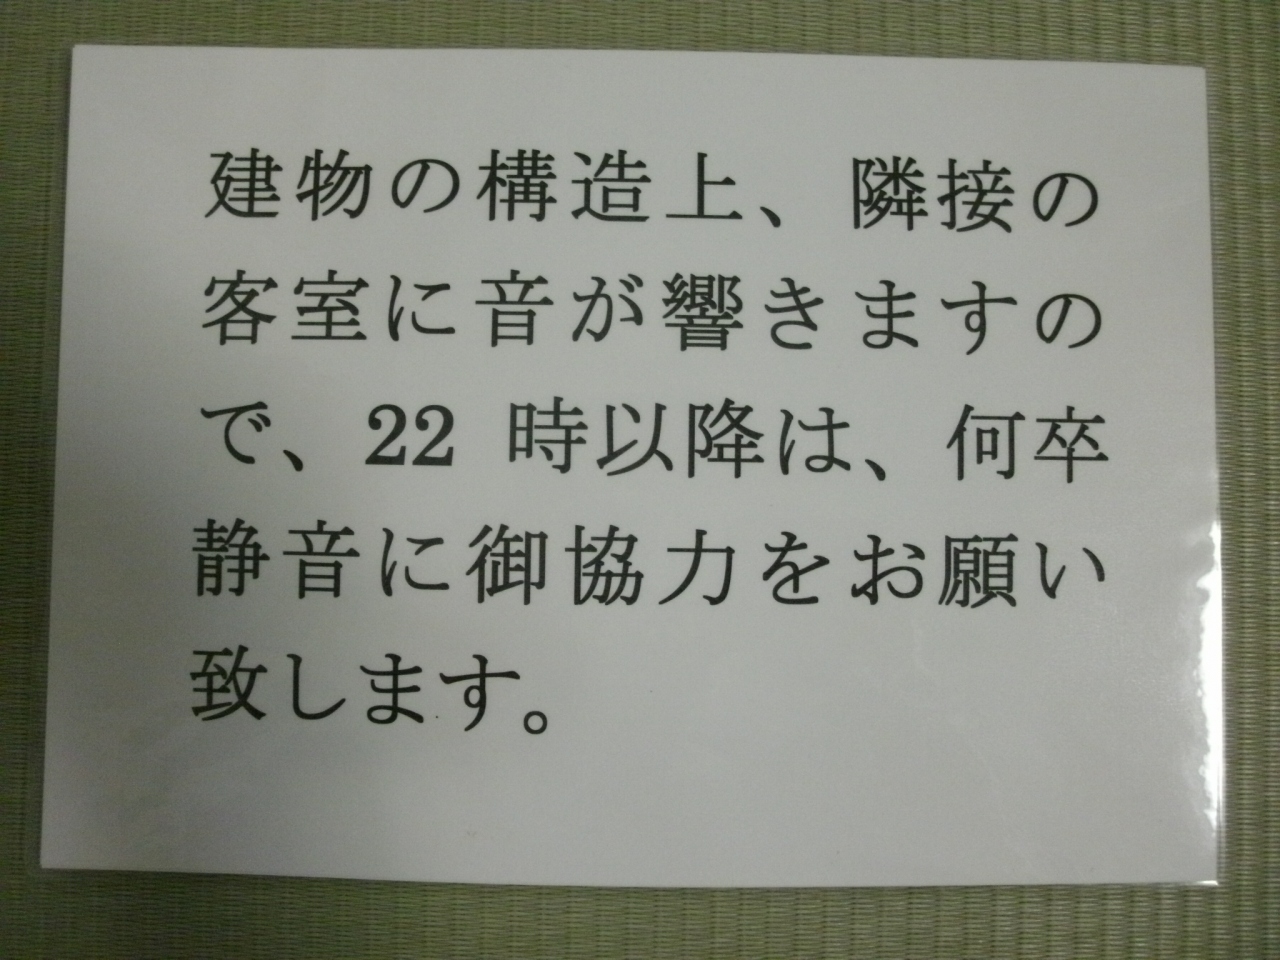 建物の構造上、隣接の
客室に音が響きますの
で、22 時以降は、何卒
静音に御協力をお願い
致します。